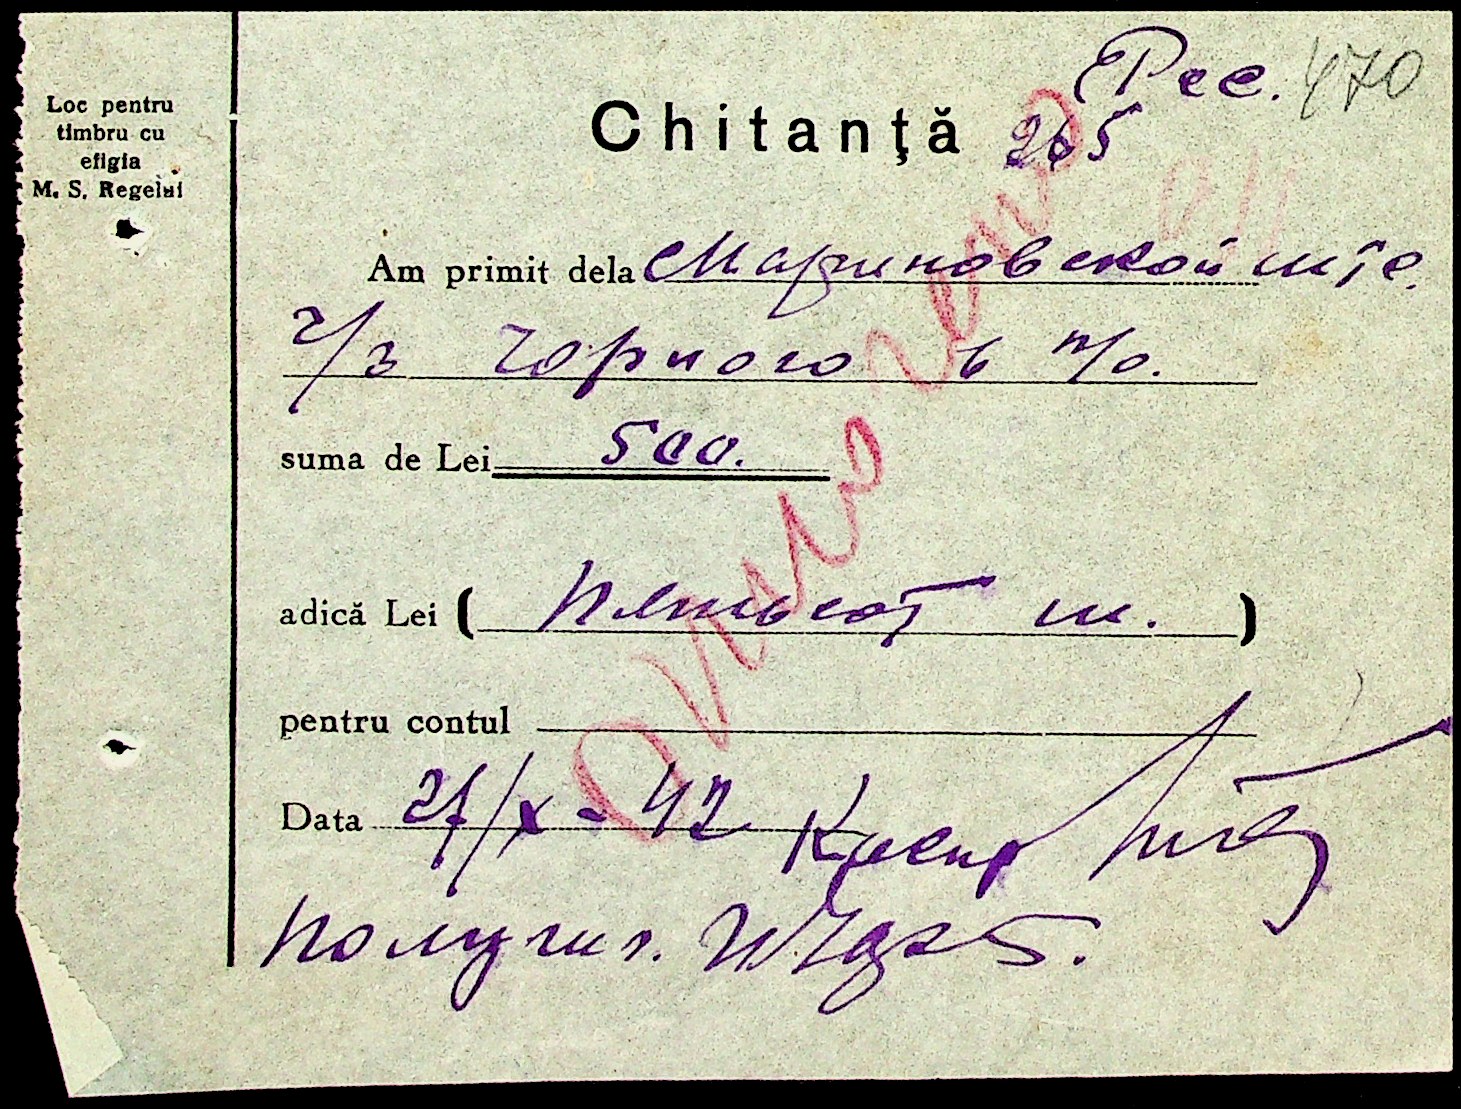 Loc pentru
timbru cu
efigia
M. S. Regelui
Рес. 470
Chitanţă 265
Am primit dela Мариновской
ч/з Чорного в п/о.
suma de Lei 500.
adică Lei ( Пятьсот )
pentru contul
Data 27/X - 42
Получил.
Оплочено